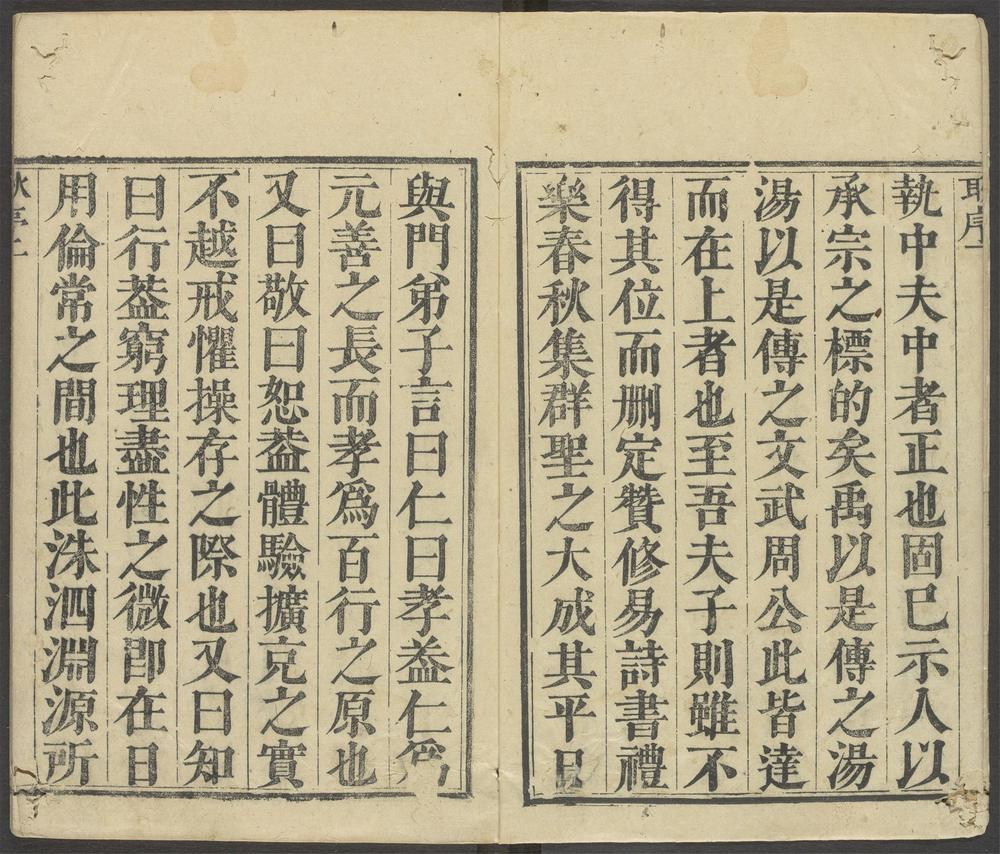 執中夫中者正也固已示人以
承宗之標的矣禹以是傳之湯
湯以是傳之文武周公此皆達
而在上者也至吾夫子則雖不
得其位而刪定贊修易詩書禮
樂春秋集群聖之大成其平日
與門弟子言曰仁曰孝葢仁爲
元善之長而孝爲百行之原也
又曰敬曰恕葢體驗擴克之實
不越戒懼操存之際也又曰知
曰行葢窮理盡性之微即在日
用倫常之間也此洙泗淵源所